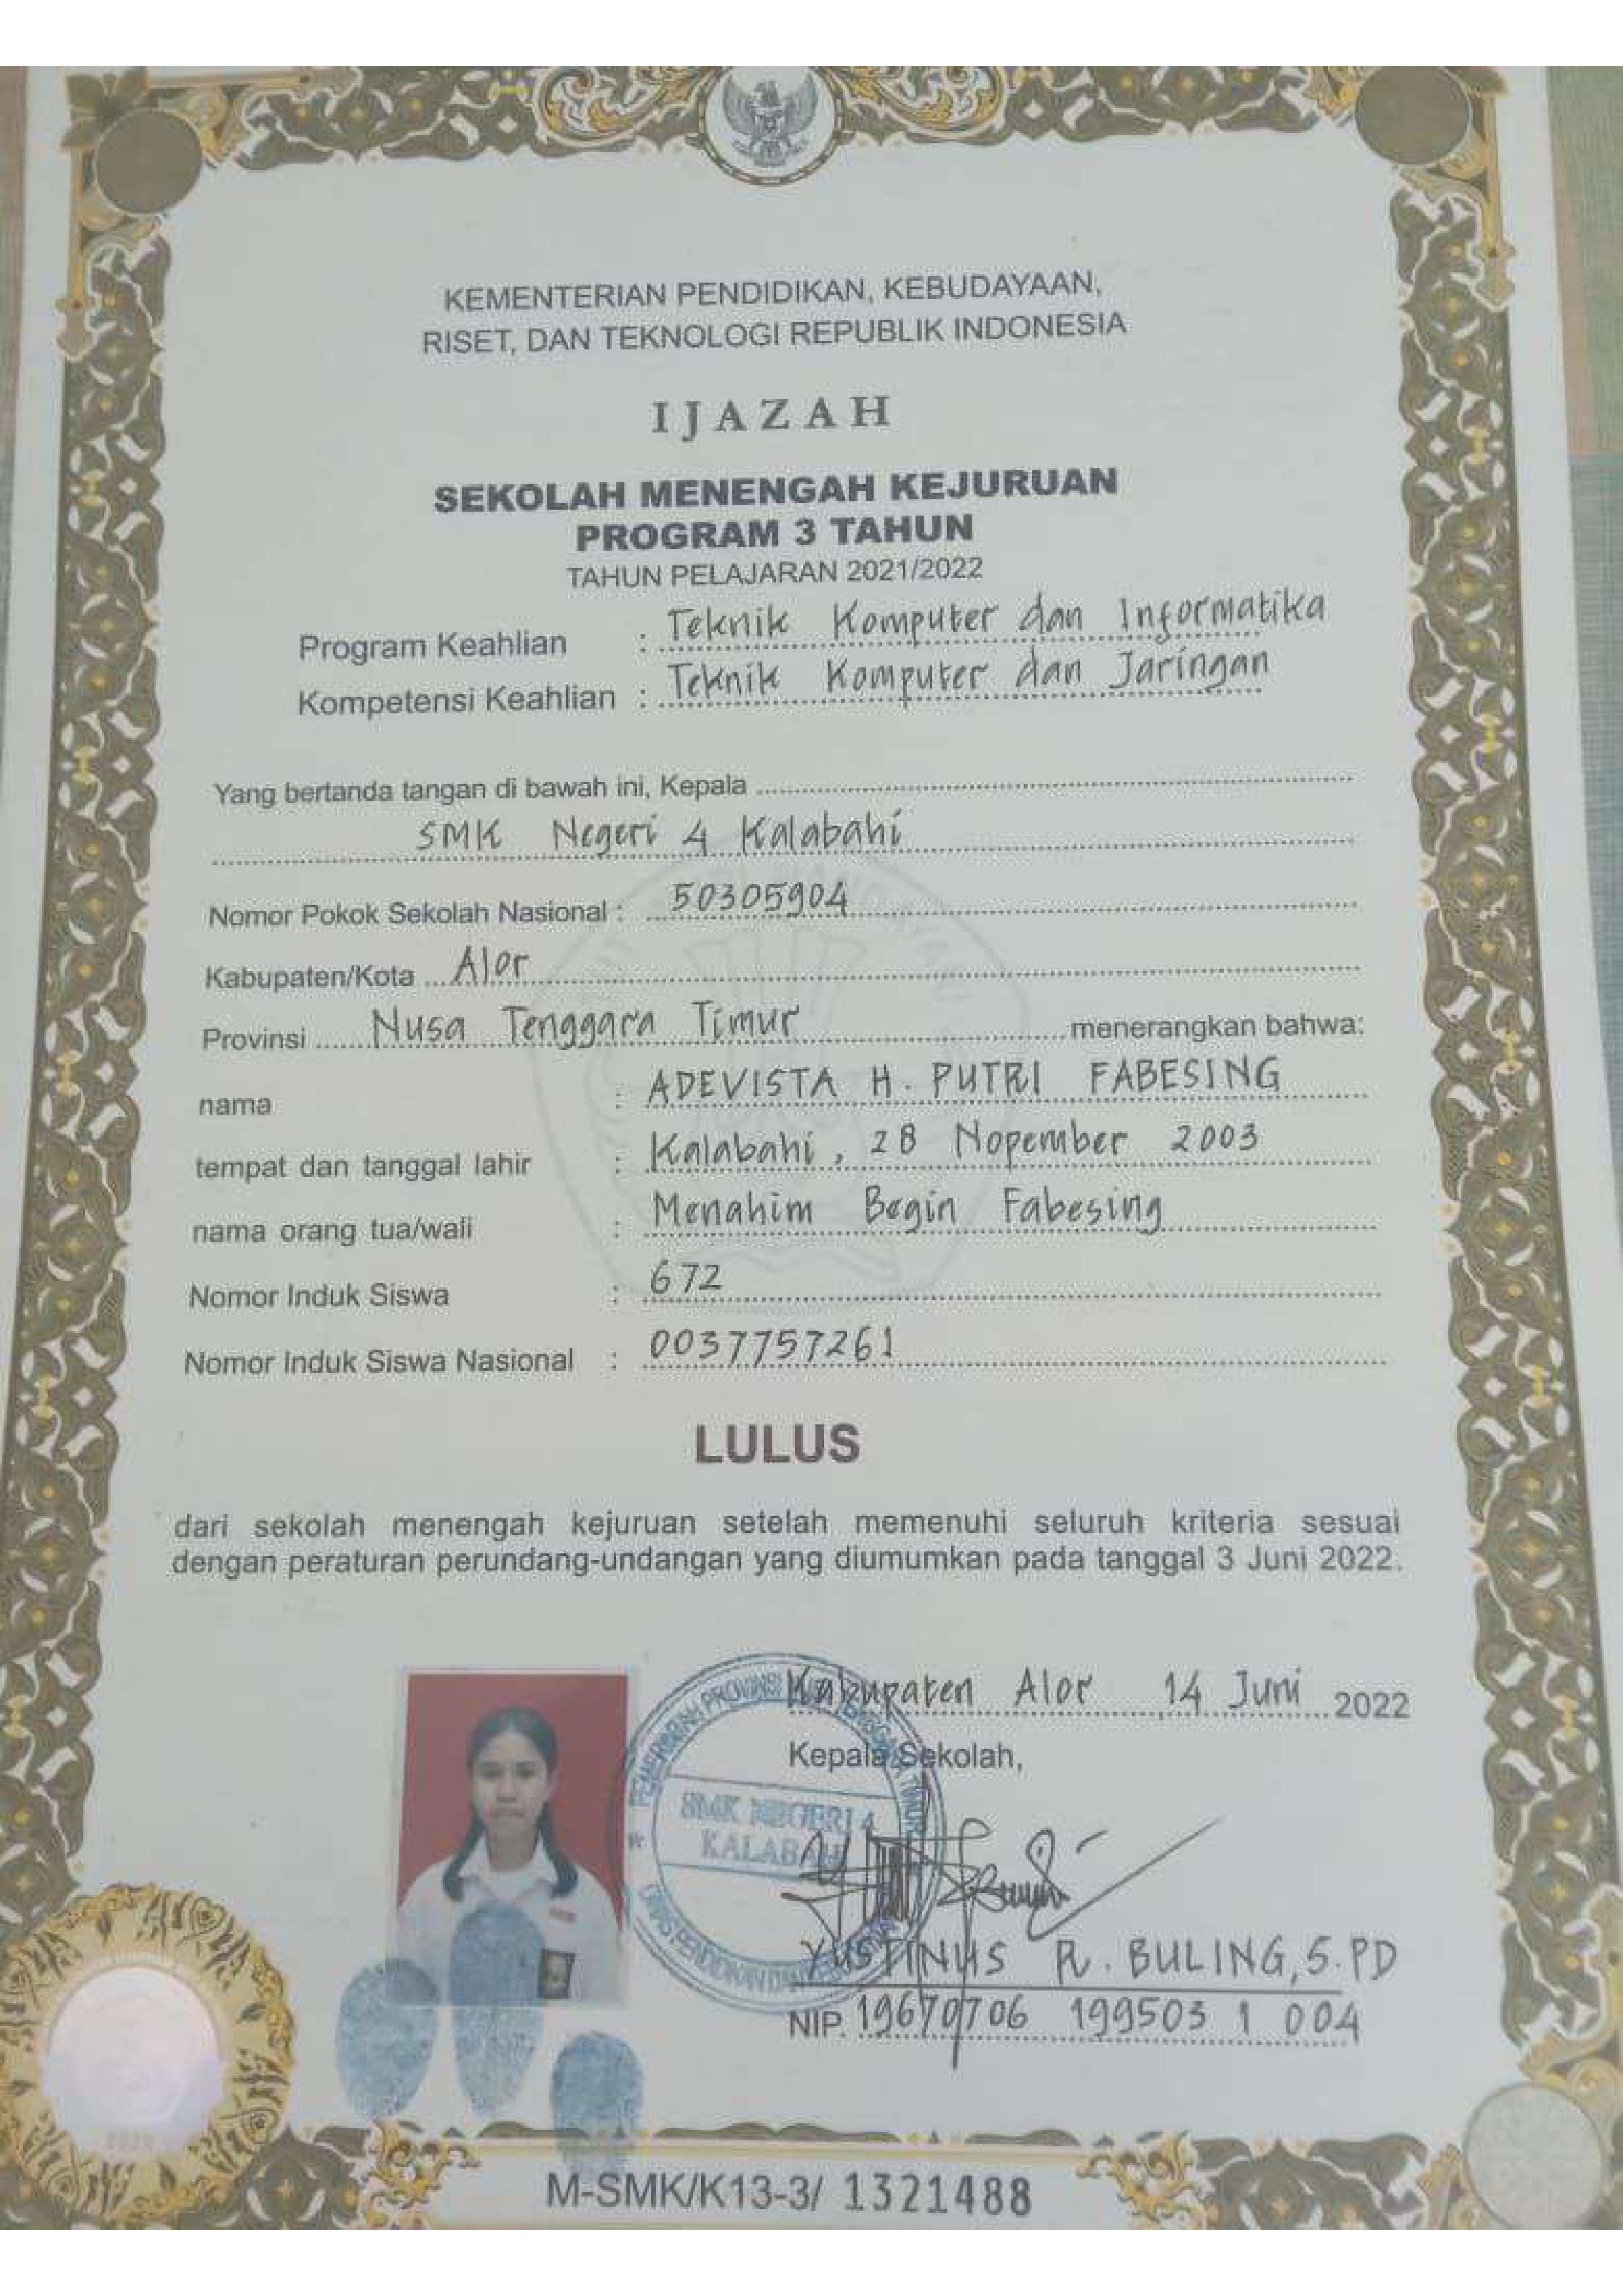 KEMENTERIAN PENDIDIKAN, KEBUDAYAAN,
RISET, DAN TEKNOLOGI REPUBLIK INDONESIA
IJAZAH
SEKOLAH MENENGAH KEJURUAN
PROGRAM 3 TAHUN
TAHUN PELAJARAN 2021/2022
Program Keahlian : Teknik Komputer dan Informatika
Kompetensi Keahlian : Teknik Komputer dan Jaringan
Yang bertanda tangan di bawah ini, Kepala
SMK Negeri 4 Kalabahi
Nomor Pokok Sekolah Nasional : 50305904
Kabupaten/Kota Alor
Provinsi Nusa Tenggara Timur menerangkan bahwa:
nama : ADEVISTA H. PUTRI FABESING
tempat dan tanggal lahir : Kalabahi, 28 Nopember 2003
nama orang tua/wali : Menahim Begin Fabesing
Nomor Induk Siswa : 672
Nomor Induk Siswa Nasional : 0037757261
LULUS
dari sekolah menengah kejuruan setelah memenuhi seluruh kriteria sesuai
dengan peraturan perundang-undangan yang diumumkan pada tanggal 3 Juni 2022.
Kabupaten Alor, 14 Juni 2022
Kepala Sekolah,
PEMERINTAH PROVINSI TENGGARA TIMUR
SMK NEGERI 4
KALABAHI
DINAS PENDIDIKAN DAN
YUSTINUS R. BULING, S.PD
NIP. 19670706 199503 1 004
M-SMK/K13-3/ 1321488